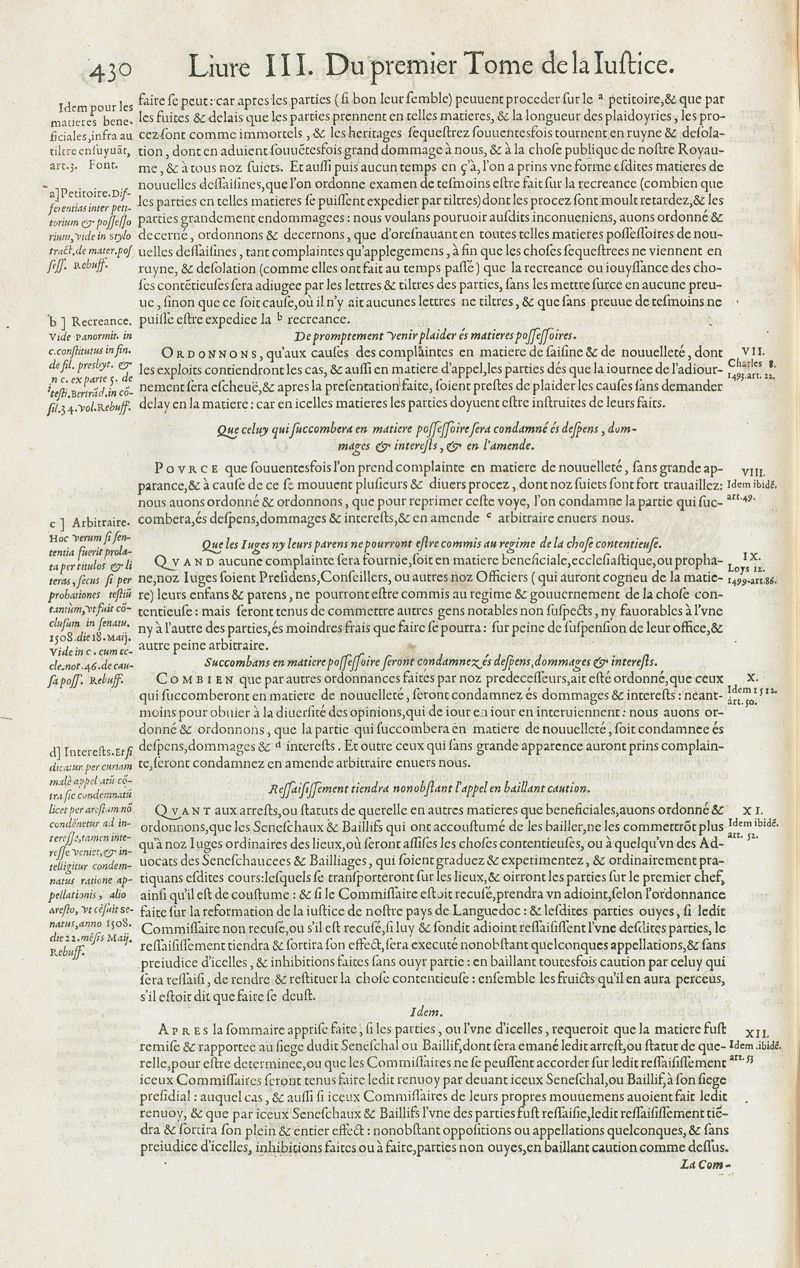 430 Liure III. Du premier Tome de la Iuſtice.
faire ſe peut: car apres les parties (ſi bon leur ſemble) peuuent proceder ſur le a petitoire,& que par
les fuites & delais que les parties prennent en telles matieres, & la longueur des plaidoyries, les pro-
cez ſont comme immortels, & les heritages ſequeſtrez ſouuentesfois tournent en ruyne & deſola-
tion, dont en aduient ſouuētesfois grand dommage à nous, & à la choſe publique de noſtre Royau-
me, & à tous noz ſuiets. Et auſſi puis aucun temps en ç'à, l'on a prins vne forme eſdites matieres de
nouuelles deſſaiſines,que l'on ordonne examen de teſmoins eſtre fait ſur la recreance (combien que
les parties en telles matieres ſe puiſſent expedier par tiltres) dont les procez ſont moult retardez,& les
parties grandement endommagees: nous voulans pouruoir auſdits inconueniens, auons ordonné &
decerné, ordonnons & decernons, que d'oreſnauant en toutes telles matieres poſſeſſoires de nou-
uelles deſſaiſines, tant complaintes qu'applegemens, à fin que les choſes ſequeſtrees ne viennent en
ruyne, & deſolation (comme elles ont fait au temps paſſé) que la recreance ou iouyſſance des cho-
ſes contētieuſes ſera adiugee par les lettres & tiltres des parties, ſans les mettre ſurce en aucune preu-
ue, ſinon que ce ſoit cauſe,où il n'y ait aucunes lettres ne tiltres, & que ſans preuue de teſmoins ne
puiſſe eſtre expediee la b recreance.
De promptement venir plaider és matieres poſſeſſoires.
ORDONNONS, qu'aux cauſes des complaintes en matiere de ſaiſine & de nouuelleté, dont
les exploits contiendront les cas, & auſſi en matiere d'appel,les parties dés que la iournee de l'adiour-
nement ſera eſcheuë,& apres la preſentation faite, ſoient preſtes de plaider les cauſes ſans demander
delay en la matiere: car en icelles matieres les parties doyuent eſtre inſtruites de leurs faits.
Que celuy qui ſuccombera en matiere poſſeſſoire ſera condamné és deſpens, dom-
mages & intereſts, & en l'amende.
POVRCE que ſouuentesfois l'on prend complainte en matiere de nouuelleté, ſans grande ap-
parance,& à cauſe de ce ſe mouuent pluſieurs & diuers procez, dont noz ſuiets ſont fort trauaillez:
nous auons ordonné & ordonnons, que pour reprimer ceſte voye, l'on condamne la partie qui ſuc-
combera,és deſpens,dommages & intereſts,& en amende c arbitraire enuers nous.
Que les Iuges ny leurs parens ne pourront eſtre commis au regime de la choſe contentieuſe.
QVAND aucune complainte ſera fournie,ſoit en matiere beneficiale,eccleſiaſtique,ou propha-
ne,noz Iuges ſoient Preſidens,Conſeillers, ou autres noz Officiers (qui auront cogneu de la matie-
re) leurs enfans & parens, ne pourront eſtre commis au regime & gouuernement de la choſe con-
tentieuſe: mais ſeront tenus de commettre autres gens notables non ſuſpects, ny fauorables à l'vne
ny à l'autre des parties,és moindres frais que faire ſe pourra: ſur peine de ſuſpenſion de leur office,&
autre peine arbitraire.
Succombans en matiere poſſeſſoire ſeront condamnez és deſpens,dommages & intereſts.
COMBIEN que par autres ordonnances faites par noz predeceſſeurs,ait eſté ordonné,que ceux
qui ſuccomberont en matiere de nouuelleté, ſeront condamnez és dommages & intereſts: neant-
moins pour obuier à la diuerſité des opinions,qui de iour en iour en interuiennent: nous auons or-
donné & ordonnons, que la partie qui ſuccombera en matiere de nouuelleté, ſoit condamnee és
deſpens,dommages & d intereſts. Et outre ceux qui ſans grande apparence auront prins complain-
te,ſeront condamnez en amende arbitraire enuers nous.
Reſſaiſiſſement tiendra nonobſtant l'appel en baillant caution.
QVANT aux arreſts,ou ſtatuts de querelle en autres matieres que beneficiales,auons ordonné &
ordonnons,que les Seneſchaux & Baillifs qui ont accouſtumé de les bailler,ne les commettrōt plus
qu'à noz Iuges ordinaires des lieux,où ſeront aſſiſes les choſes contentieuſes, ou à quelqu'vn des Ad-
uocats des Seneſchaucees & Bailliages, qui ſoient graduez & experimentez, & ordinairement pra-
tiquans eſdites cours:leſquels ſe tranſporteront ſur les lieux,& oirront les parties ſur le premier chef,
ainſi qu'il eſt de couſtume: & ſi le Commiſſaire eſtoit recuſé,prendra vn adioint,ſelon l'ordonnance
faite ſur la reformation de la iuſtice de noſtre pays de Languedoc: & leſdites parties ouyes, ſi ledit
Commiſſaire non recuſé,ou s'il eſt recuſé,ſi luy & ſondit adioint reſſaiſiſſent l'vne deſdites parties, le
reſſaiſiſſement tiendra & ſortira ſon effect,ſera executé nonobſtant quelconques appellations,& ſans
preiudice d'icelles, & inhibitions faites ſans ouyr partie: en baillant toutesfois caution par celuy qui
ſera reſſaiſi, de rendre & reſtituer la choſe contentieuſe: enſemble les fruicts qu'il en aura perceus,
s'il eſtoit dit que faire ſe deuſt.
Idem.
APRES la ſommaire appriſe faite, ſi les parties, ou l'vne d'icelles, requeroit que la matiere fuſt
remiſe & rapportee au ſiege dudit Seneſchal ou Baillif,dont ſera emané ledit arreſt,ou ſtatut de que-
relle,pour eſtre determinee,ou que les Commiſſaires ne ſe peuſſent accorder ſur ledit reſſaiſiſſement
iceux Commiſſaires ſeront tenus faire ledit renuoy par deuant iceux Seneſchal,ou Baillif,à ſon ſiege
preſidial: auquel cas, & auſſi ſi iceux Commiſſaires de leurs propres mouuemens auoient fait ledit
renuoy, & que par iceux Seneſchaux & Baillifs l'vne des parties fuſt reſſaiſie,ledit reſſaiſiſſement tiē-
dra & ſortira ſon plein & entier effect: nonobſtant oppoſitions ou appellations quelconques, & ſans
preiudice d'icelles, inhibitions faites ou à faire,parties non ouyes,en baillant caution comme deſſus.
La Com-
Idem pour les
matieres bene-
ficiales,infra au
tiltre enſuyuāt,
art.3. Font.
a]Petitoire.Dif-
ferentias inter peti-
torium & poſſeſſo
rium,vide in stylo
tract.de mater.poſ
ſeſſ. Rebuff.
b ] Recreance.
Vide Panormit. in
c.conſtitutus in fin.
de fil. presbyt. &
n c. ex parte 5. de
teſti.Bertrād.in cō-
ſil.34.vol.Rebuff.
c ] Arbitraire.
Hoc verum ſi ſen-
tentia fuerit prola-
ta per titulos & li
teras, ſecus ſi per
probationes teſtiū
tantùm,vt fuit cō-
cluſum in ſenatu.
1508.die 18.Maij.
Vide in c. cum ec-
cle.not.46.de cau-
ſa poſſ. Rebuff.
d] Intereſts.Et ſi
dicatur per curiam
malè appellatū cō-
tra ſic condemnatū
licet per areſtum nō
condēnetur ad in-
tereſſe,tamen inte-
reſſe veniet,& in-
telligitur condem-
natus ratione ap-
pellationis, alio
areſto, vt cēſuit se-
natus,anno 1508.
die 22.mēſis Maij.
Rebuff.
VII.
Charles 8.
1493.art.22.
VIII.
Idem ibidē.
art.49.
IX.
Loys 12.
1499.art.86.
X.
Idem 1512.
art.50.
XI.
Idem ibidē.
art. 52.
XII.
Idem.ibidē.
art.53